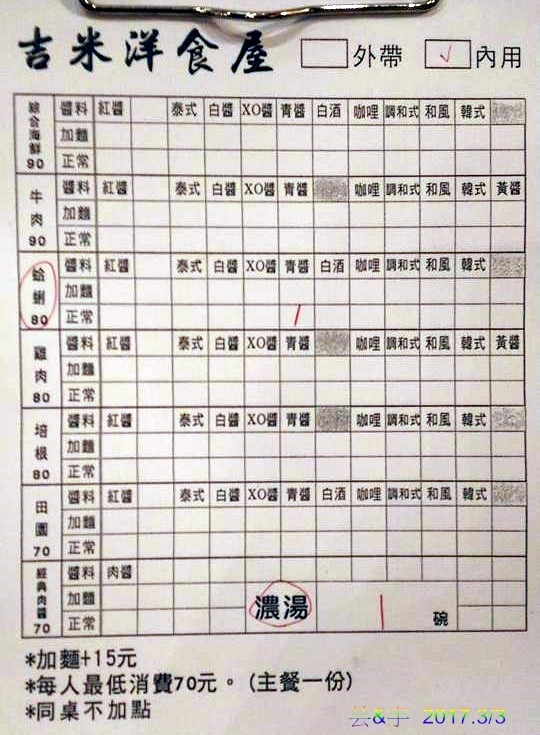 吉米洋食屋 外帶 √ 內用
綜合海鮮 90 醬料 紅醬 泰式 白醬 XO醬 青醬 白酒 咖哩 調和式 和風 韓式
加麵
正常
牛肉 90 醬料 紅醬 泰式 白醬 XO醬 青醬 咖哩 調和式 和風 韓式 黃醬
加麵
正常
蛤蜊 80 醬料 紅醬 泰式 白醬 XO醬 青醬 白酒 咖哩 調和式 和風 韓式
加麵
正常 /
雞肉 80 醬料 紅醬 泰式 白醬 XO醬 青醬 咖哩 調和式 和風 韓式 黃醬
加麵
正常
培根 80 醬料 紅醬 泰式 白醬 XO醬 青醬 咖哩 調和式 和風 韓式
加麵
正常
田園 70 醬料 紅醬 泰式 白醬 XO醬 青醬 白酒 咖哩 調和式 和風 韓式
加麵
正常
經典肉醬 70 醬料 肉醬
加麵
正常
濃湯 | 碗
*加麵+15元
*每人最低消費70元。(主餐一份)
*同桌不加點
芸&宇 2017.3/3